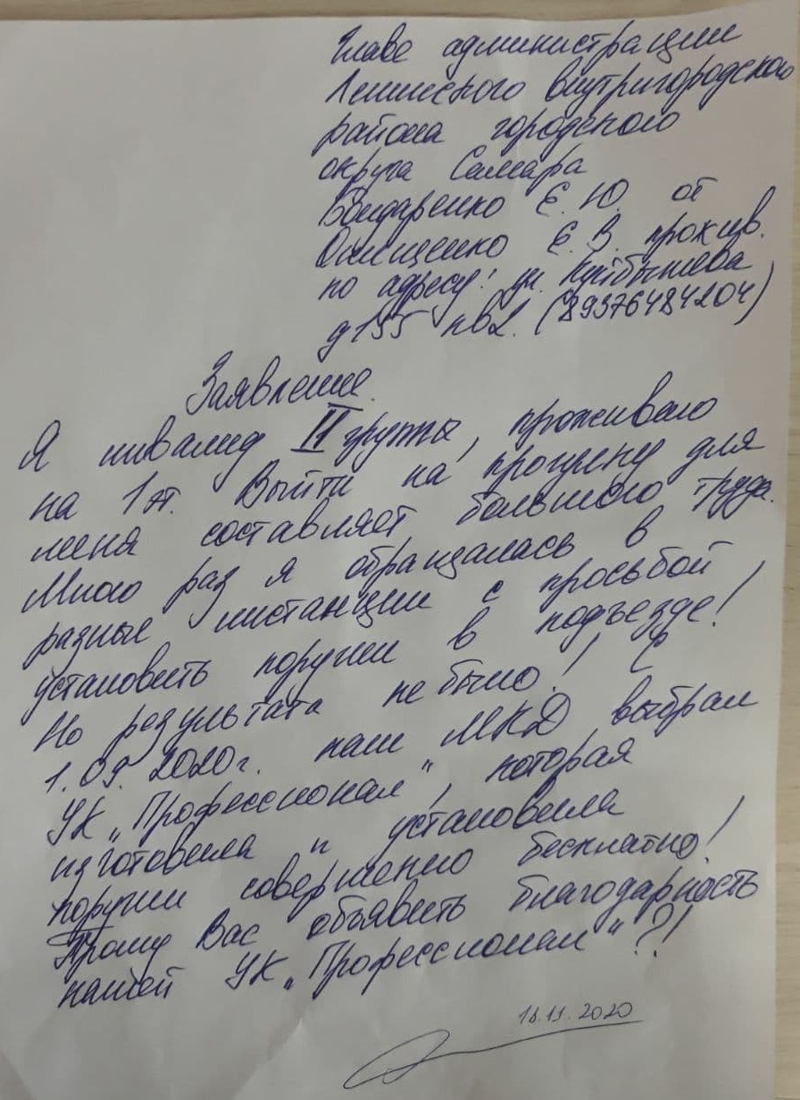 Главе администрации
Ленинского внутригородского
района городского
округа Самара
Бондаренко Е. Ю. от
Онищенко Е. В. прожив.
по адресу: ул. Куйбышева
д 135 кв2. (89376484204)
Заявление.
Я инвалид II группы, проживаю
на 1 эт. Выйти на прогулку для
меня составляет большого труда.
Много раз я обращалась в
разные инстанции с просьбой
установить поручни в подъезде!
Но результата не было! С
1.09.2020г. наш МКД выбрал
УК „Профессионал", которая
изготовила и установила
поручни совершенно бесплатно!
Прошу Вас объявить благодарность
нашей УК „Профессионал"?!
18.11.2020